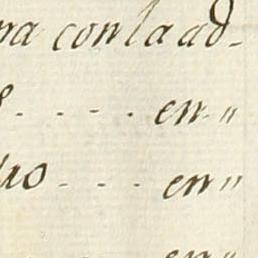 ra con la ad-
. . . . en „
uo . . . en „
en „